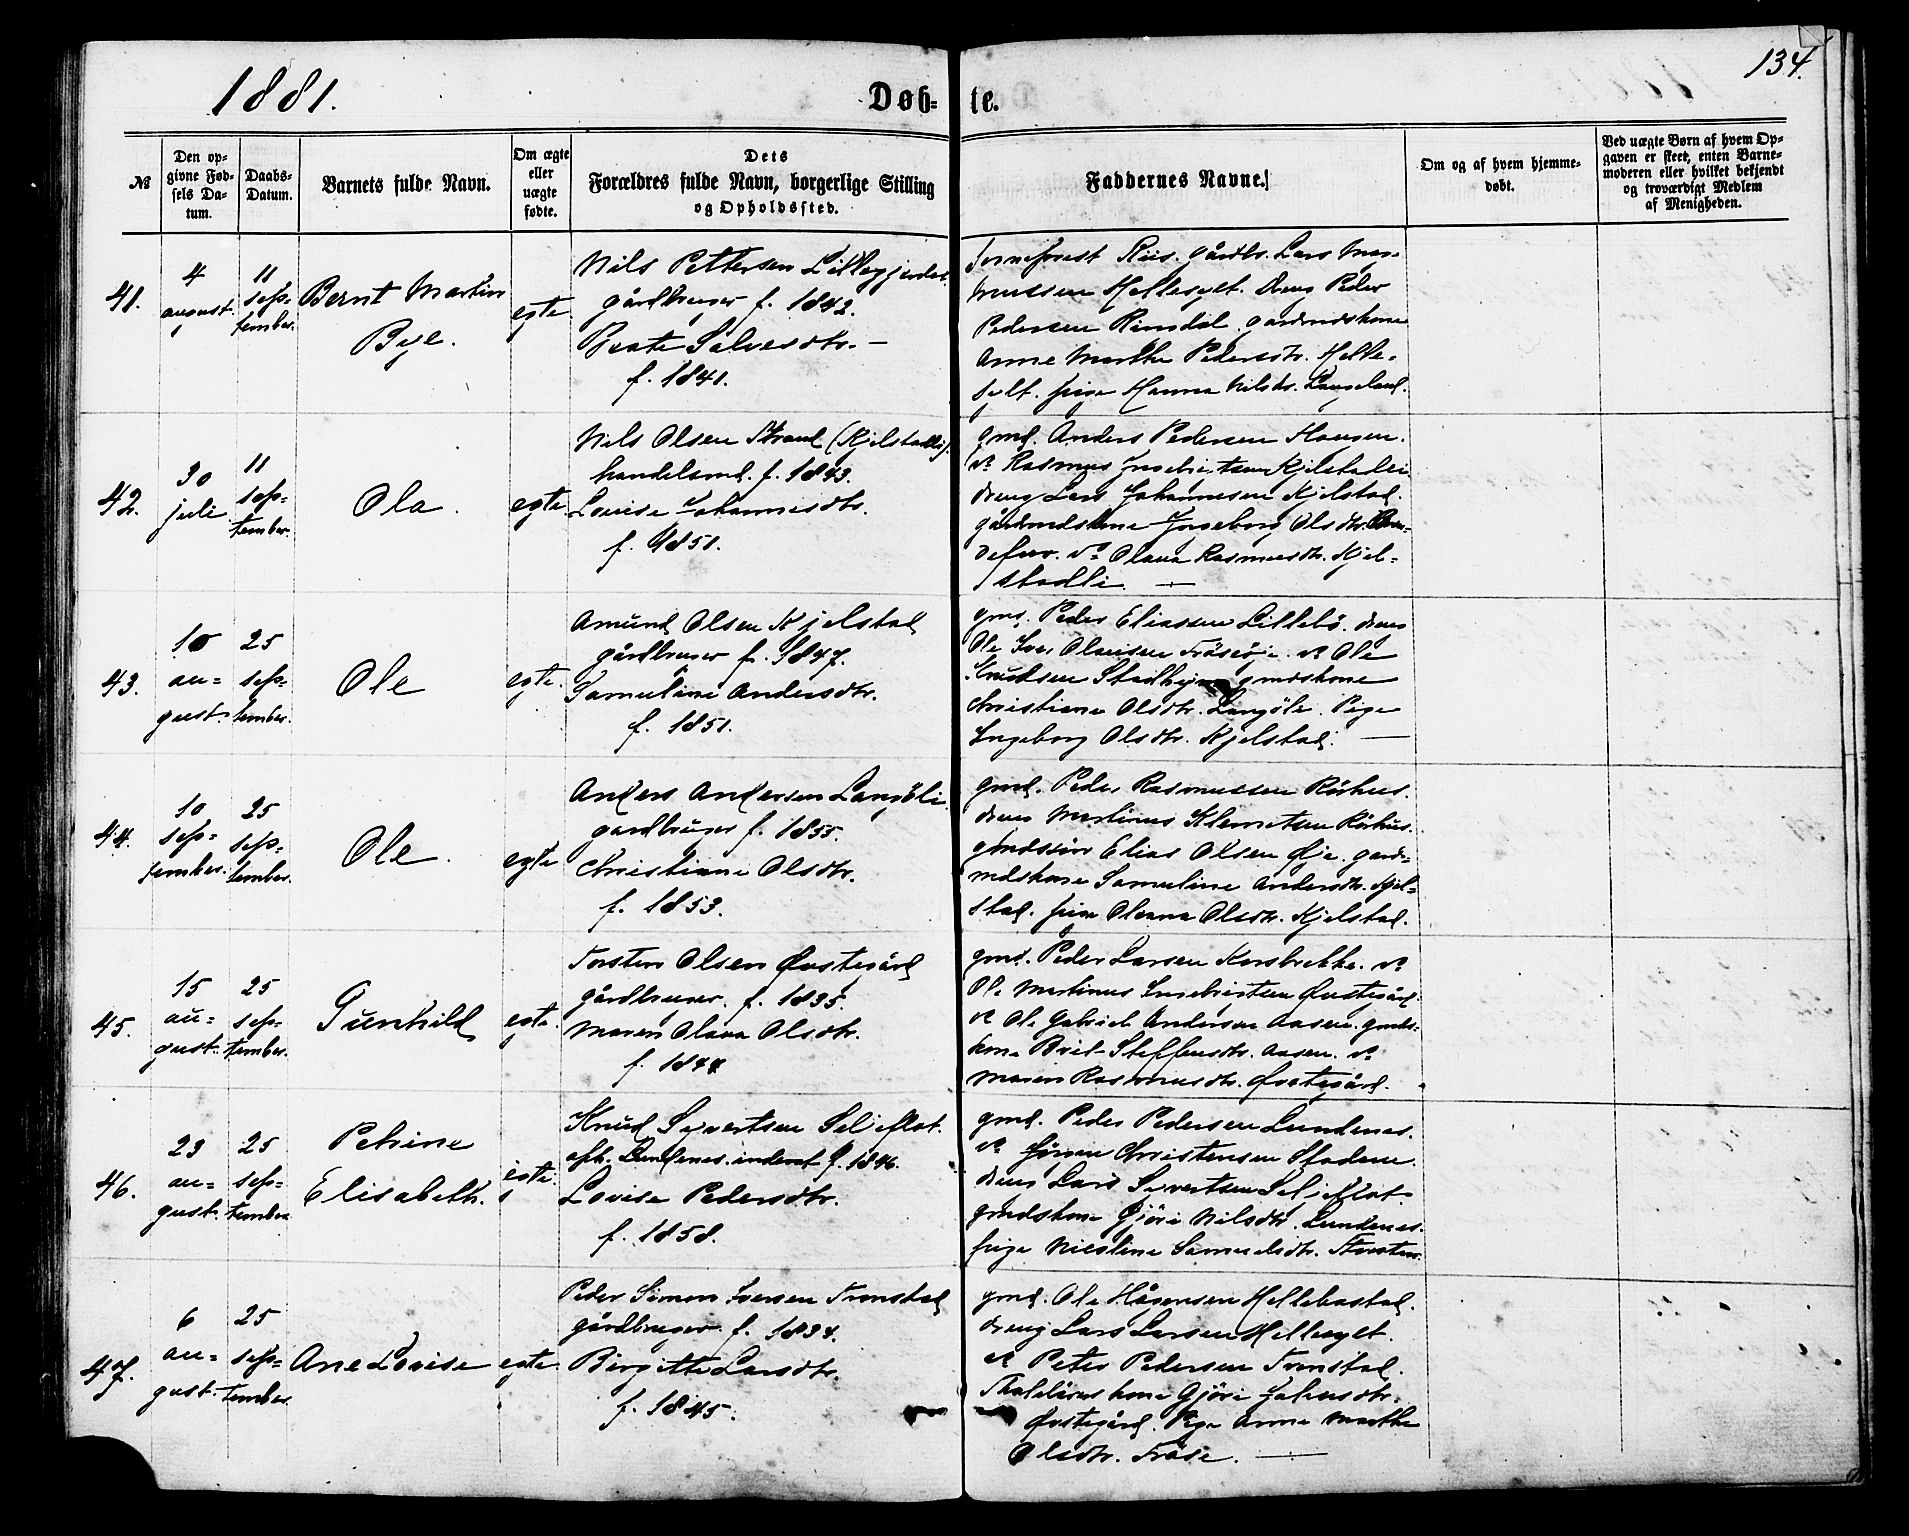 1881.
Døb-
te.
134.
№
Den op-
givne Fød-
sels Da-
tum.
Daabs-
Datum.
Barnets fulde Navn.
Om ægte
eller
uægte
fødte.
Dets
Forældres fulde Navn, borgerlige Stilling
og Opholdssted.
Faddernes Navne.
Om og af hvem hjemme-
døbt.
Ved uægte Børn af hvem Op-
gaven er skeet, enten Barne-
moderen eller hvilket bekjendt
og troværdigt Medlem
af Menigheden.
41.
4
august.
11
sep-
tember.
Bernt Martin
Bye.
egte
Nils Pettersen Lillegjerdet
gårdbruger f. 1842.
Beate Salvesdtr. —
f. 1841.
Riis. gårdbr. Lars
Hellesylt. Dreng Peder
Pedersen Ramdal gardmdskone
Anne Marthe Pedersdtr. Helle-
sylt. pige Hanna Nilsdtr. Langeland.
42.
30
juli
11
sep-
tember.
Ola.
egte.
Nils Olsen Strand (Kjelstadli).
handelsmd. f. 1843.
Lovise Johannesdtr.
f. 1851.
gmd. Anders Pedersen Haugen.
do Rasmus Ingebrigtsen Kjelstadli
dreng Lars Johannesen Kjelstad.
gårdmdskone Ingeborg Olsdtr.
do Olava Rasmusdtr. Kjel-
stadli. —
43.
10
au-
gust.
25
sep-
tember.
Ole
egte.
Amund Olsen Kjelstad
gårdbruger f. 1847.
Samuline Andersdtr.
f. 1851.
gmd. Peder Eliassen Lillebø. dreng
Ole Iver Olausen do Ole
Knudsen Stadheim gmdskone
Christiane Olsdtr. Langöli. Pige
Ingeborg Olsdtr. Kjelstad. —
44.
10
sep-
tember.
25
sep-
tember.
Ole.
egte
Anders Andersen Langöli
gardbruger f. 1855.
Christiane Olsdtr.
f. 1853.
gmd. Peder Rasmussen Rörhus.
dreng Martinus Klemetsen Rörhus.
gmdssön Elias Olsen Øje. gard-
mdskone Samuline Andersdtr. Kjel-
stad. pige Oleana Olsdtr. Kjelstad.
45.
15
au-
gust.
25
sep-
tember.
Gunhild
egte.
Torsten Olsen Øvstegård
gårdbruger. f. 1835.
Maren Olava Olsdtr.
f. 1844
gmd. Peder Larsen Korsbrekke. do
Ole Martinus Ingebrigtsen Øvstegård.
do Ole Gabriel Andersen Aasen. gmds-
kone Brit Steffensdtr. Aasen. do
Maren Rasmusdtr. Øvstegård.
46.
23
au-
gust.
25
sep-
tember
Petrine
Elisabeth.
egte
Knud Syvertsen Seljeflot.
oph. Lundenes. inderst f. 1846.
Lovise Pedersdtr.
f. 1858.
gmd. Peder Pedersen Lundenes.
do Jörgen Christensen Stadem.
dreng Lars Syvertsen Seljeflot
gmdskone Gjöri Nilsdtr. Lundenes.
pige Nicoline Samuelsdtr.
47.
6
au-
gust.
25
sep-
tember.
Ane Lovise
egte
Peder Simon Iversen Tronstad
gårdbruger. f. 1834.
Birgitte Larsdtr.
f. 1845.
gmd. Ole Hågensen Hellebostad.
dreng Lars Larsen Hellesylt.
do Peter Pedersen Tronstad.
kone Gjöri
Øvstegård. Pige Anne Marthe
Olsdtr. Fröse. —